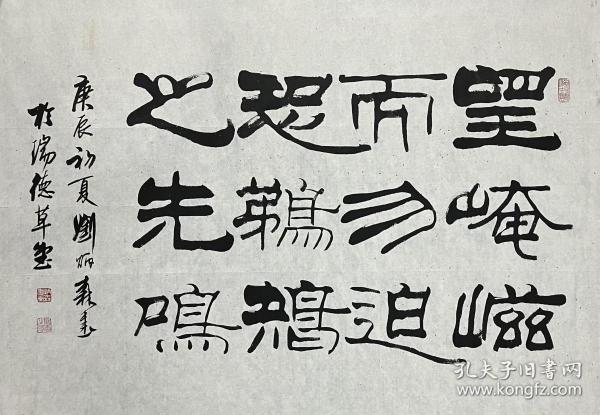 望崦嵫
而勿迫
恐鵜鴂
之先鳴
庚辰初夏劉炳森書
於瑞德草堂
孔夫子旧书网
www.kongfz.com